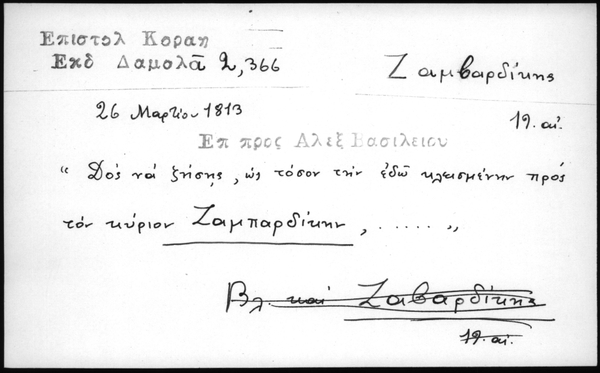 Επιστολ Κοραη
Εκδ Δαμαλᾶ 2,366
Ζαμβαρδίκης
26 Μαρτίου 1813
19. αἰ.
Επ προς Αλεξ Βασιλειου
“ Δὸς νὰ ζήσῃς, ὡς τόσον τὴν ἐδῶ κλεισμένην πρὸς
τὸν κύριον Ζαμπαρδίκην, ..... „
Βλ. καὶ Ζαβαρδίκης
19. αἰ.